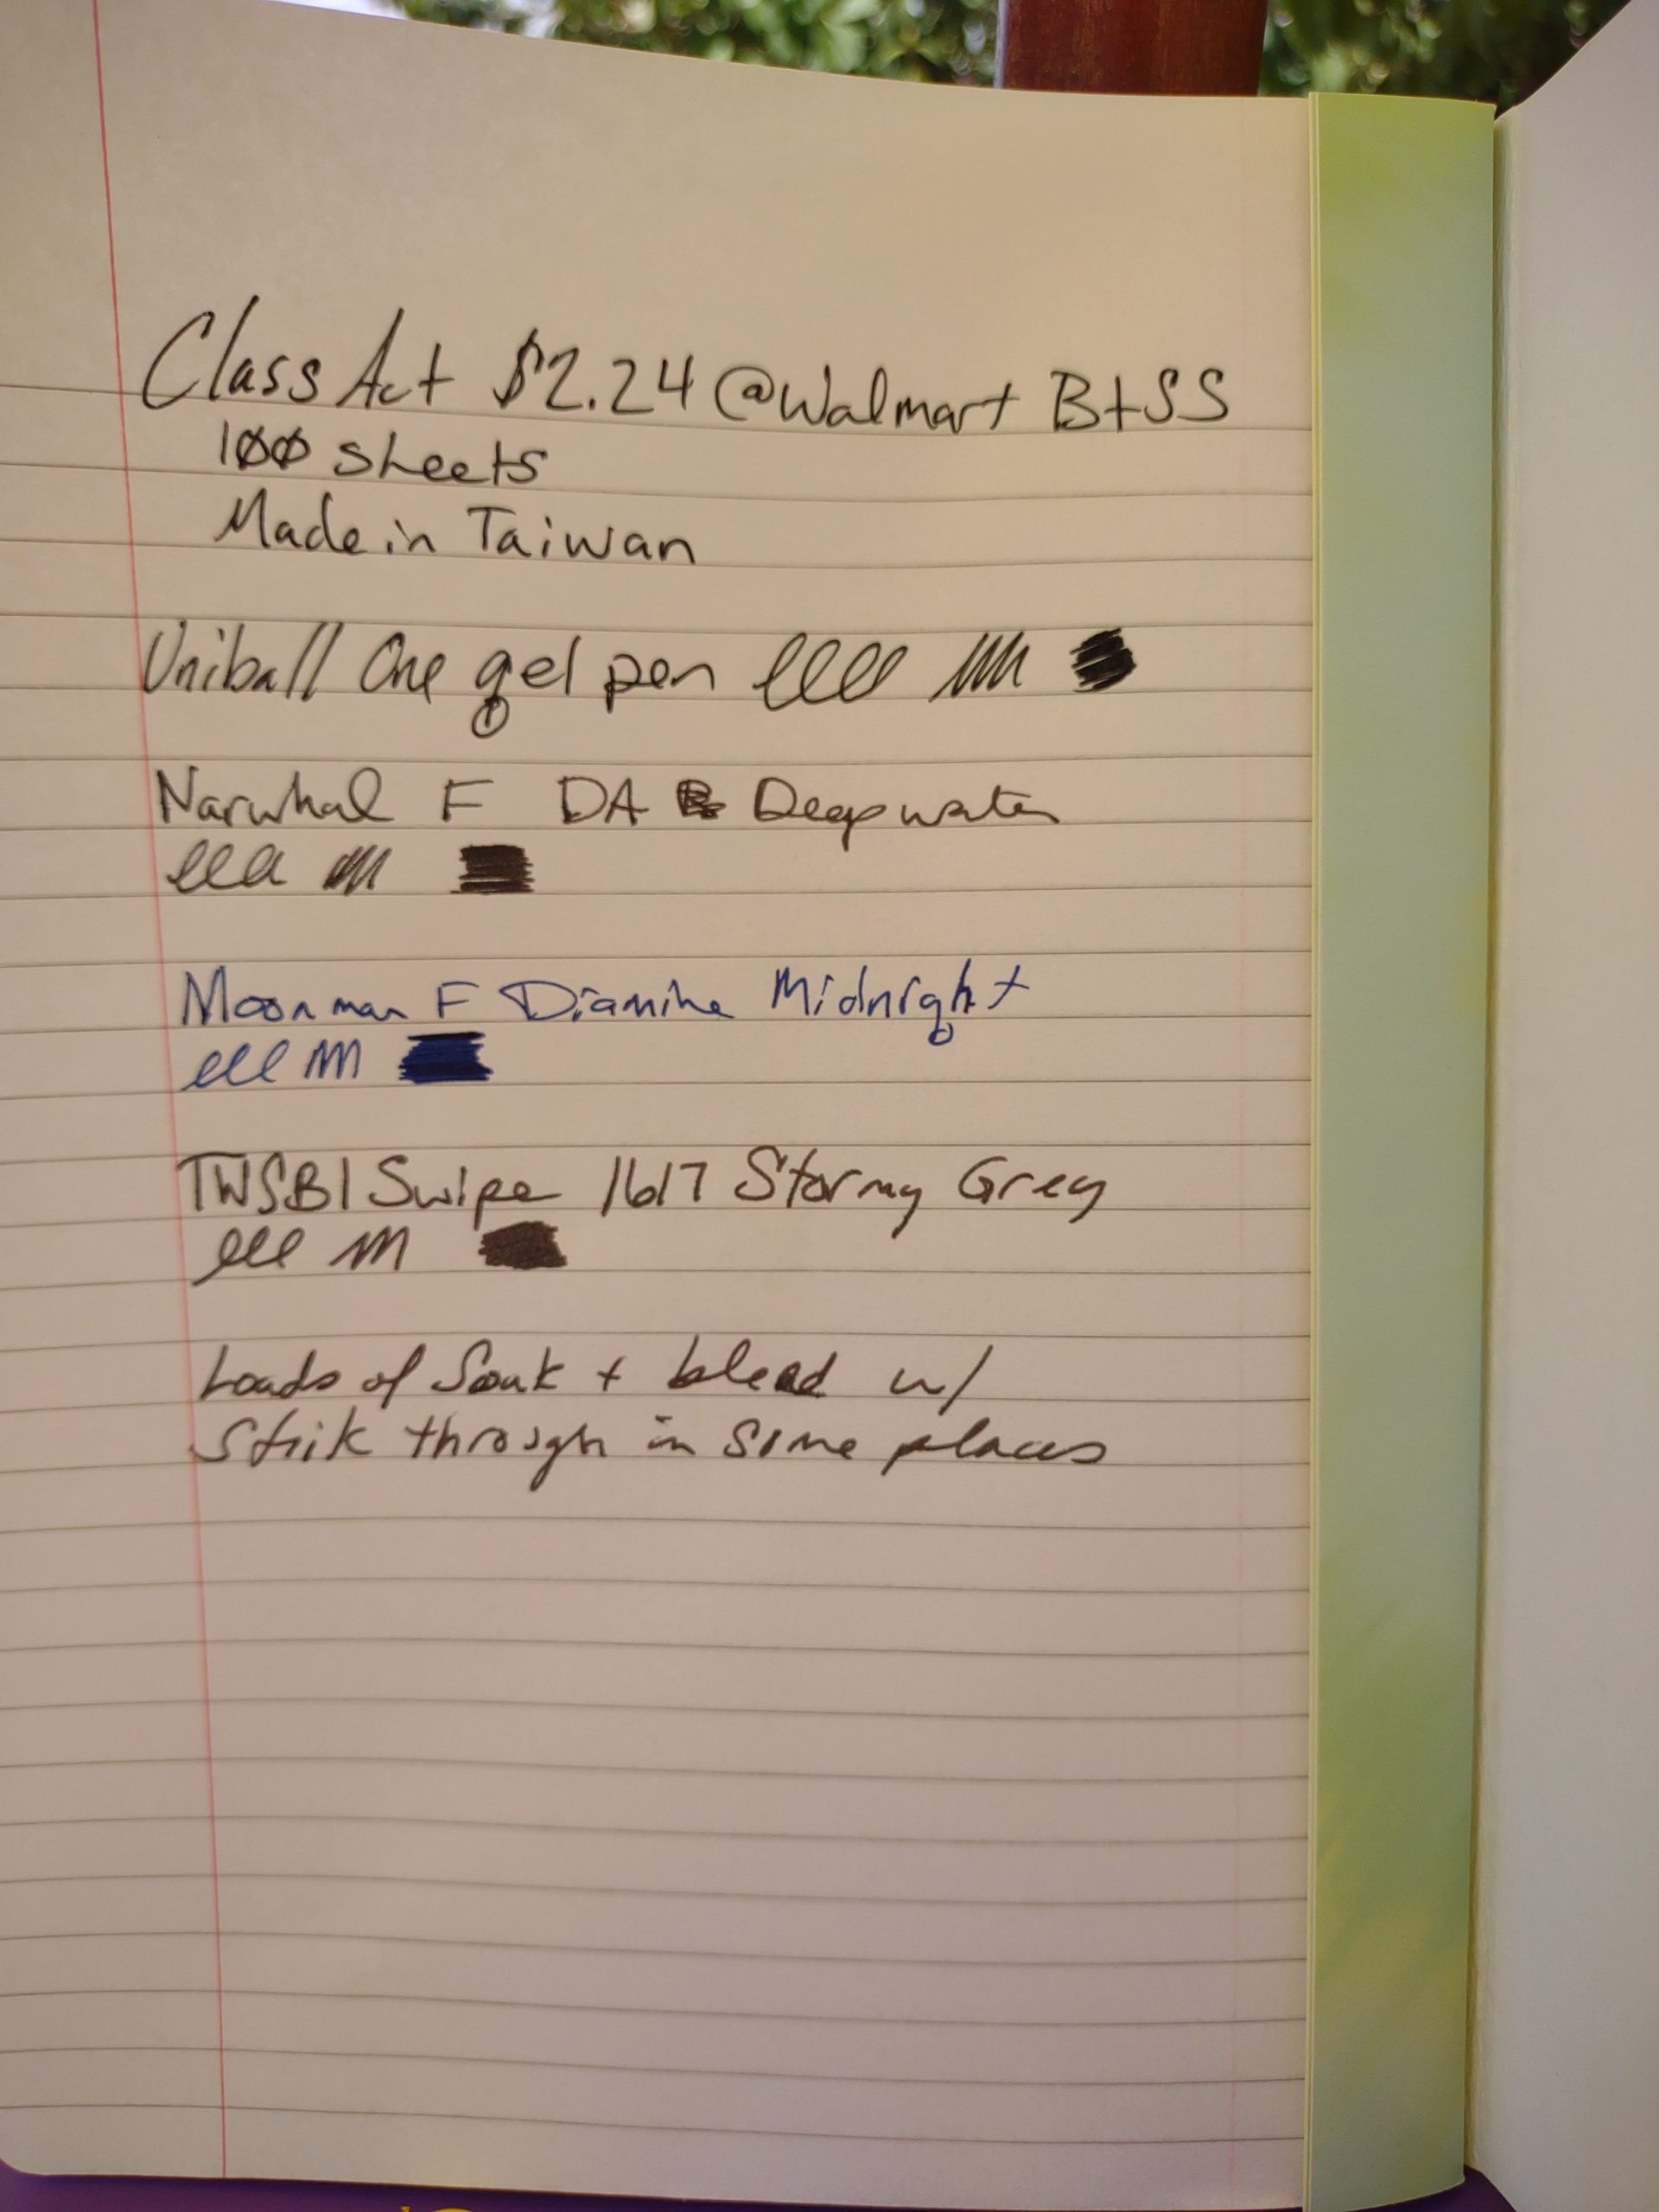 Class Act $2.24 @Walmart BtSS
100 sheets
Made in Taiwan
Uniball One gel pen
Narwhal F DA Deepwater
Moonman F Diamine Midnight
TWSBI Swipe 1617 Stormy Grey
Loads of Soak + bleed w/
Strik through in some places